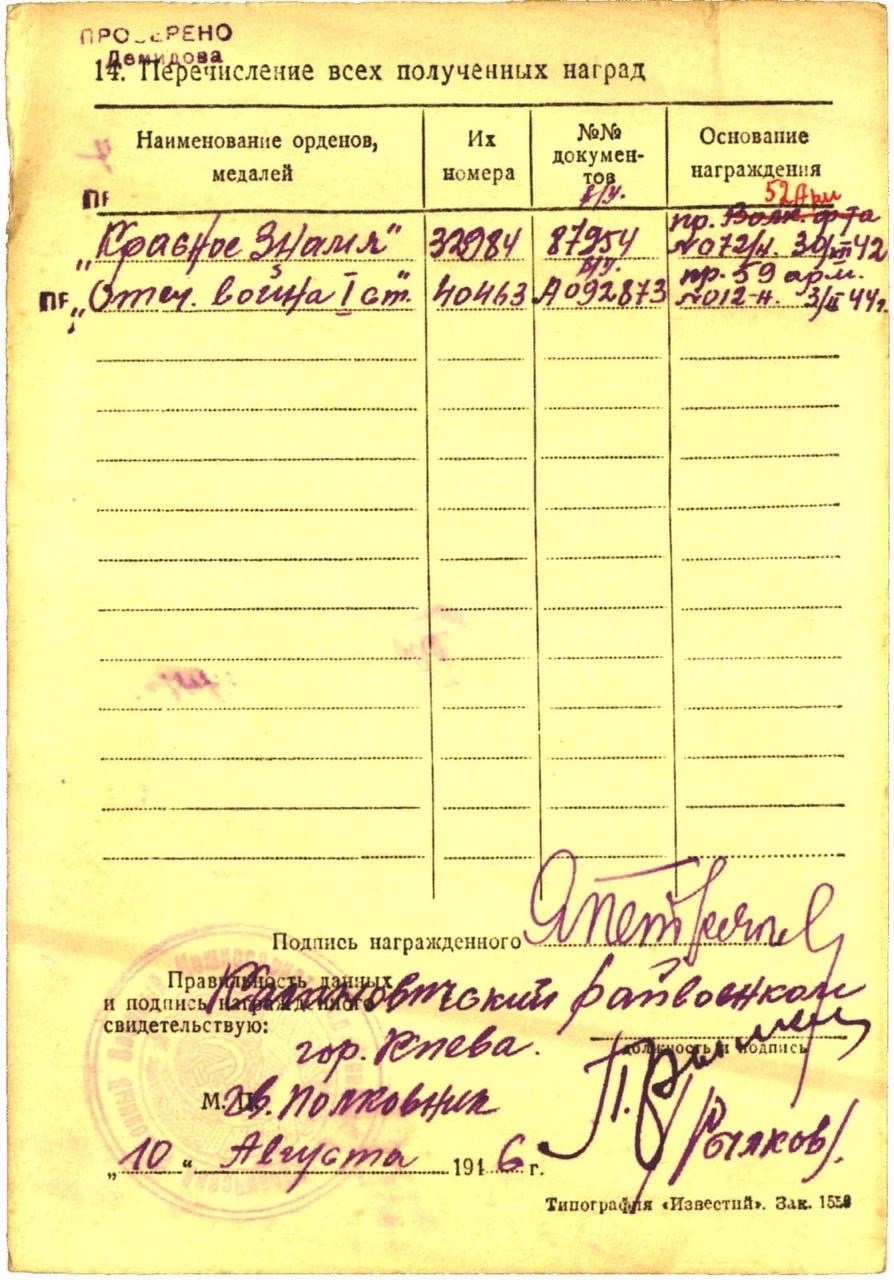 ПРОВЕРЕНО
Демидова
14. Перечисление всех полученных наград
Наименование орденов, медалей
Их номера
№№ документов
Основание награждения
52 Арм
в/у.
пр. Волх. ф-та
„Красное Знамя" 32984 87954 №072/н. 30/III 42
в/у. пр. 59 арм.
„Отеч. война I ст." 40463 А092873 №012-н. 3/II 44г.
Подпись награжденного
Правильность данных
и подпись награжденного
свидетельствую:
Кагановичский райвоенком
должность и подпись
гор. Киева.
М. П.
Гв. Полковник
(Рылков).
„10" Августа 1946 г.
Типография «Известий». Зак. 1538